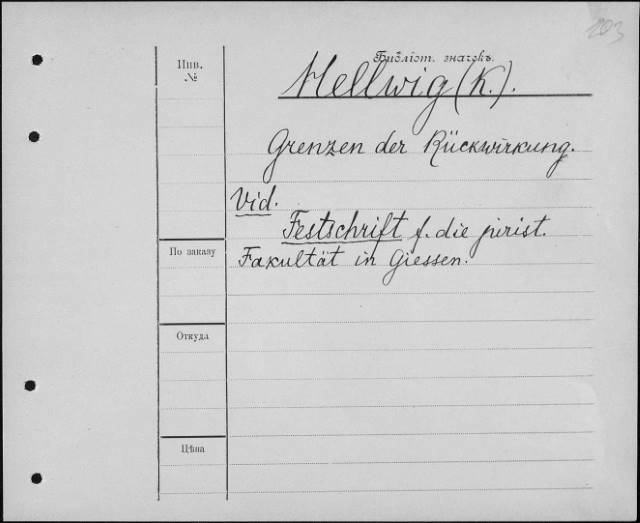 203
Инв.
№
Библіот. значекъ.
Hellwig (K.).
Grenzen der Rückwirkung.
Vid.
Festschrift f. die jurist.
Fakultät in Giessen.
По заказу
Откуда
Цѣна